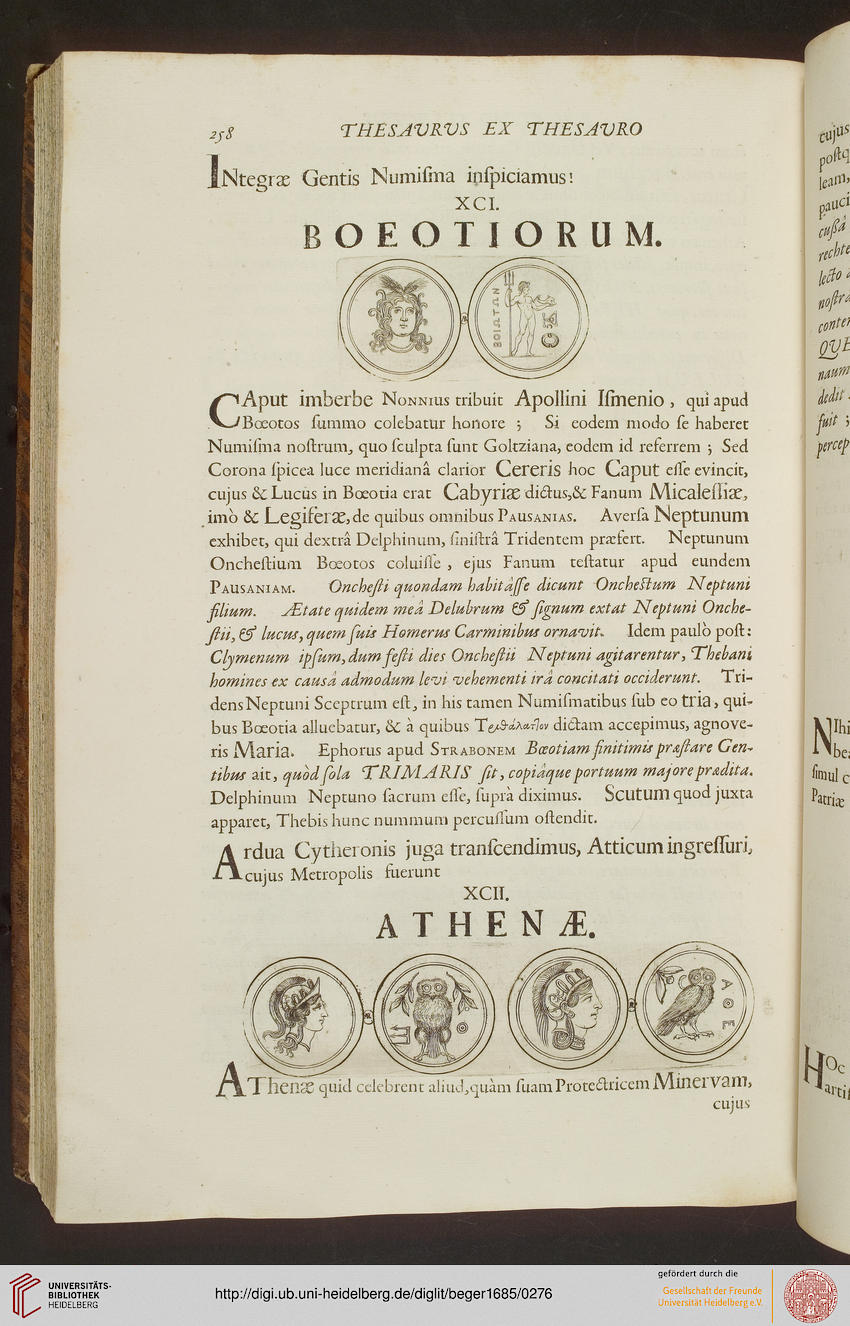 258 THESAVRVS EX THESAVRO
INtegræ Gentis Numiſma inſpiciamus:
XCI.
BOEOTIORUM.
ΒΟΙΩΤΩΝ
CAput imberbe NONNIUS tribuit Apollini Iſmenio, qui apud
Bœotos ſummo colebatur honore ; Si eodem modo ſe haberet
Numiſma noſtrum, quo ſculpta ſunt Goltziana, eodem id referrem ; Sed
Corona ſpicea luce meridianâ clarior Cereris hoc Caput eſſe evincit,
cujus & Lucus in Bœotia erat Cabyriæ dictus,& Fanum Micaleſſiæ,
imò & Legiferæ,de quibus omnibus PAUSANIAS. Averſa Neptunum
exhibet, qui dextrâ Delphinum, ſiniſtrâ Tridentem præfert. Neptunum
Oncheſtium Bœotos coluiſſe , ejus Fanum teſtatur apud eundem
PAUSANIAM. Oncheſti quondam habitâſſe dicunt Oncheſtum Neptuni
filium. Ætate quidem meâ Delubrum & ſignum extat Neptuni Onche-
ſtii, & lucus, quem ſuis Homerus Carminibus ornavit. Idem paulò poſt:
Clymenum ipſum, dum feſti dies Oncheſtii Neptuni agitarentur, Thebani
homines ex causâ admodum levi vehementi irâ concitati occiderunt. Tri-
dens Neptuni Sceptrum eſt, in his tamen Numiſmatibus ſub eo tria, qui-
bus Bœotia alluebatur, & à quibus dictam accepimus, agnove-
ris Maria. Ephorus apud STRABONEM Bœotiam finitimis præſtare Gen-
tibus ait, quòd ſola TRIMARIS ſit, copiâque portuum majore prædita.
Delphinum Neptuno ſacrum eſſe, ſuprà diximus. Scutum quod juxta
apparet, Thebis hunc nummum percuſſum oſtendit.
Ardua Cytheronis juga tranſcendimus, Atticum ingreſſuri,
cujus Metropolis fuerunt
XCII.
ATHENÆ.
ΑΘΕ
AThenæ quid celebrent aliud,quàm ſuam Protectricem Minervam,
cujus
cujus
poſtq
leam,
pauci
cuſsâ
rechte
lecto
noſtra
conter
QUE
naum
dedit
fuit ;
percep
Nihi
be
ſimul c
Patriæ
HOc
arti
UNIVERSITÄTS-
BIBLIOTHEK
HEIDELBERG
http://digi.ub.uni-heidelberg.de/diglit/beger1685/0276
gefördert durch die
Gesellschaft der Freunde
Universität Heidelberg e.V.